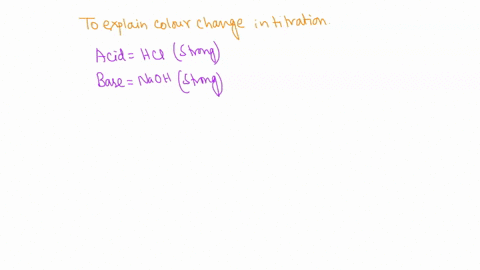 To explain colour change in titration.
Acid = HCl (Strong)
Base = NaOH (Strong)